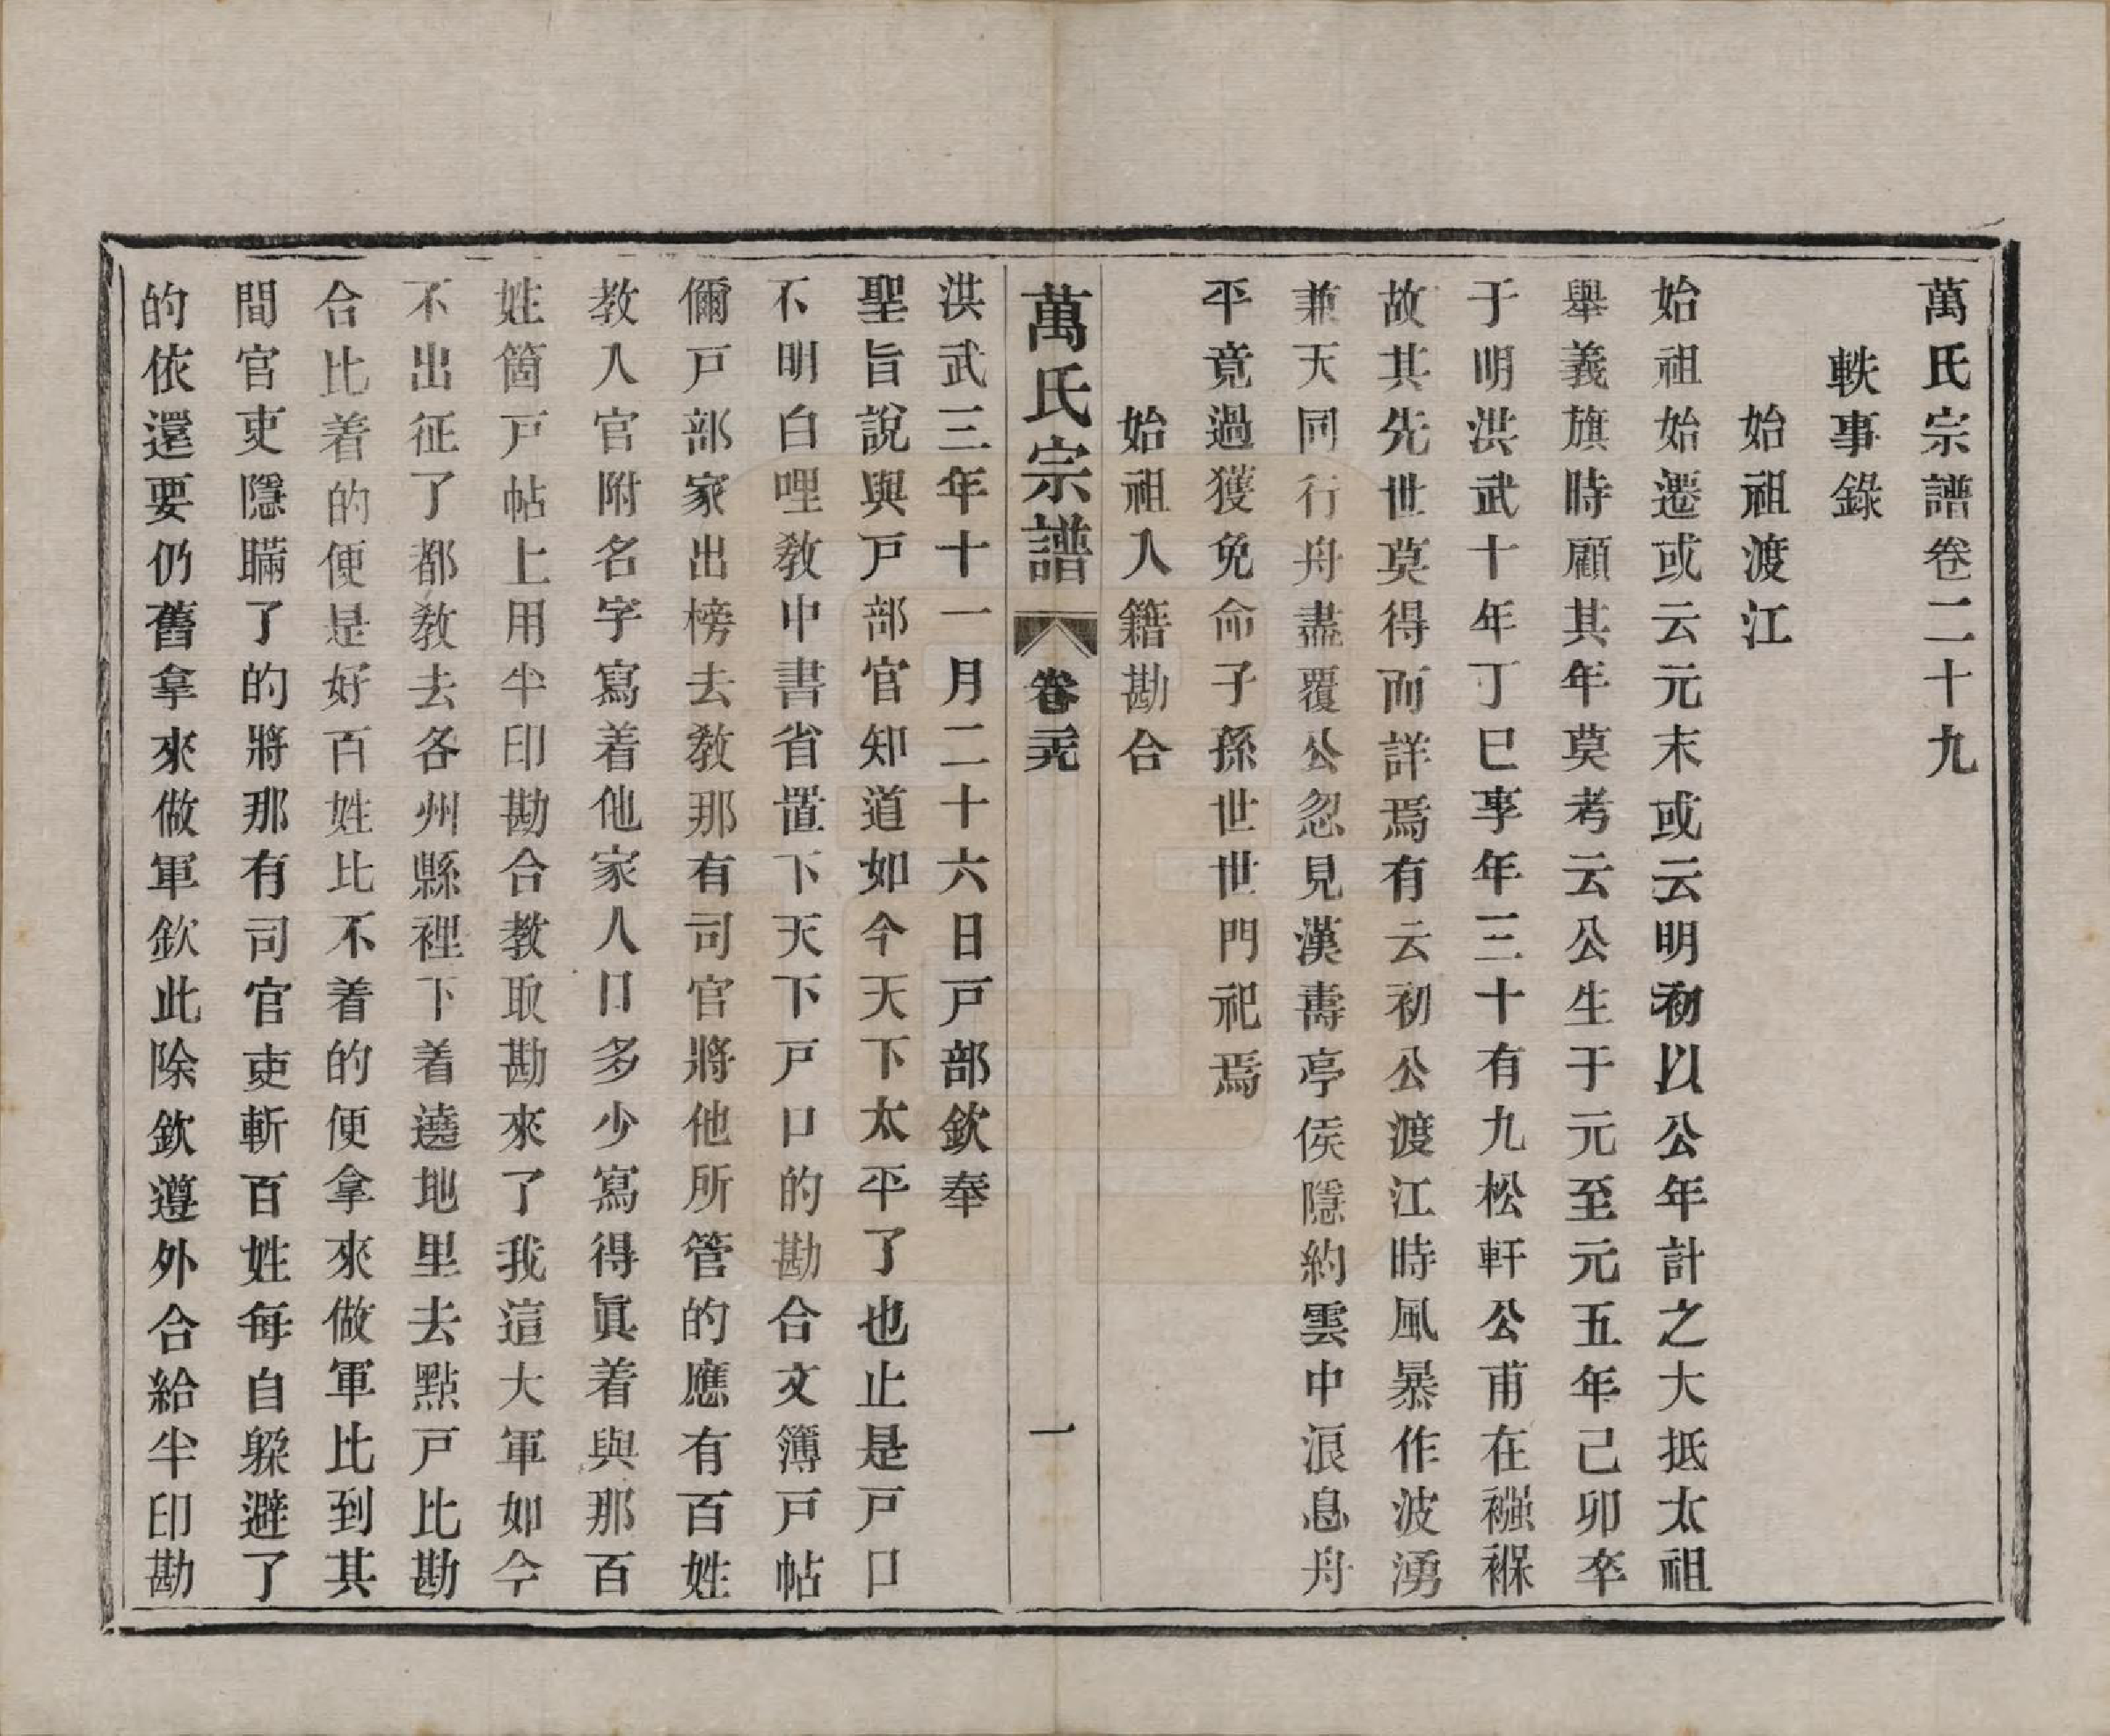 萬氏宗譜卷二十九
軼事錄
始祖渡江
始祖始遷或云元末或云明初以公年計之大抵太祖
舉義旗時顧其年莫考云公生于元至元五年己卯卒
于明洪武十年丁巳享年三十有九松軒公甫在襁褓
故其先世莫得而詳焉有云初公渡江時風暴作波湧
兼天同行舟盡覆公忽見漢壽亭侯隱約雲中浪息舟
平竟過獲免命子孫世世門祀焉
始祖入籍勘合
萬氏宗譜 卷二十九 一
洪武三年十一月二十六日戸部欽奉
聖旨說與戸部官知道如今天下太平了也止是戸口
不明白哩敎中書省置下天下戸口的勘合文簿戸帖
儞戸部家出榜去敎那有司官將他所管的應有百姓
教入官附名字寫着他家人口多少寫得眞着與那百
姓箇戸帖上用半印勘合教取勘來了我這大軍如今
不出征了都敎去各州縣裡下着遶地里去點戸比勘
合比着的便是好百姓比不着的便拿來做軍比到其
間官吏隱瞞了的將那有司官吏斬百姓每自躱避了
的依還要仍舊拿來做軍欽此除欽遵外合給半印勘